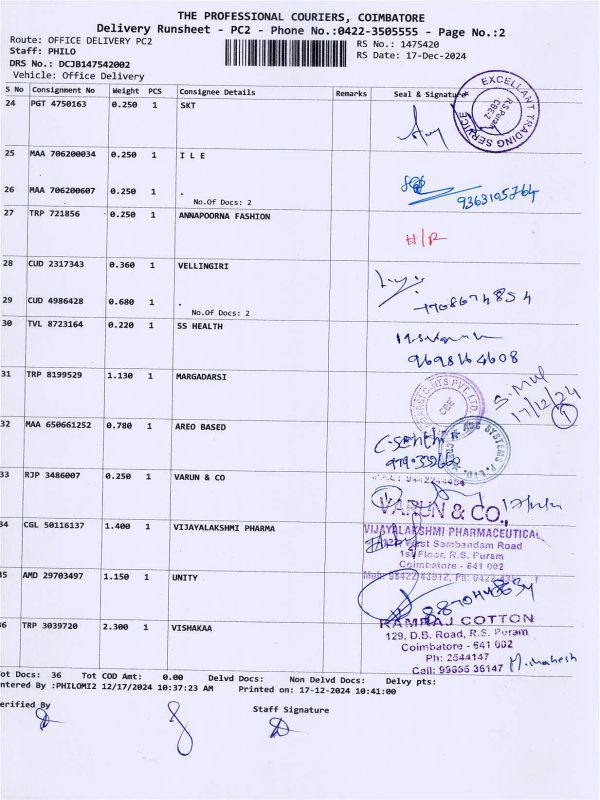 THE PROFESSIONAL COURIERS, COIMBATORE
Delivery Runsheet - PC2 - Phone No.:0422-3505555 - Page No.:2
Route: OFFICE DELIVERY PC2
RS No.: 1475420
Staff: PHILO
RS Date: 17-Dec-2024
DRS No.: DCJB147542002
Vehicle: Office Delivery
S No Consignment No Weight PCS Consignee Details Remarks Seal & Signature
24 PGT 4750163 0.250 1 SKT
EXCELLANT TRADING SERVICE
R.S.Puram
CBE-2
25 MAA 706200034 0.250 1 I L E
26 MAA 706200607 0.250 1 .
No.Of Docs: 2
9363105764
27 TRP 721856 0.250 1 ANNAPOORNA FASHION
H/R
28 CUD 2317343 0.360 1 VELLINGIRI
29 CUD 4986428 0.680 1 .
No.Of Docs: 2
30 TVL 8723164 0.220 1 SS HEALTH
9698164608
31 TRP 8199529 1.130 1 MARGADARSI
CBE
17/12/24
32 MAA 650661252 0.780 1 AREO BASED
33 RJP 3486007 0.250 1 VARUN & CO
VARUN & CO.,
34 CGL 50116137 1.400 1 VIJAYALAKSHMI PHARMA
VIJAYALAKSHMI PHARMACEUTICAL
West Sambandam Road
1st Floor, R.S. Puram
Coimbatore - 641 002
35 AMD 29703497 1.150 1 UNITY
36 TRP 3039720 2.300 1 VISHAKAA
RAMRAJ COTTON
129, D.B. Road, R.S. Puram
Coimbatore - 641 002
Ph: 2544147
Cell: 99655 36147
M. Mahesh
ot Docs: 36 Tot COD Amt: 0.00 Delvd Docs: Non Delvd Docs: Delvy pts:
ntered By :PHILOMI2 12/17/2024 10:37:23 AM Printed on: 17-12-2024 10:41:00
erified By
Staff Signature